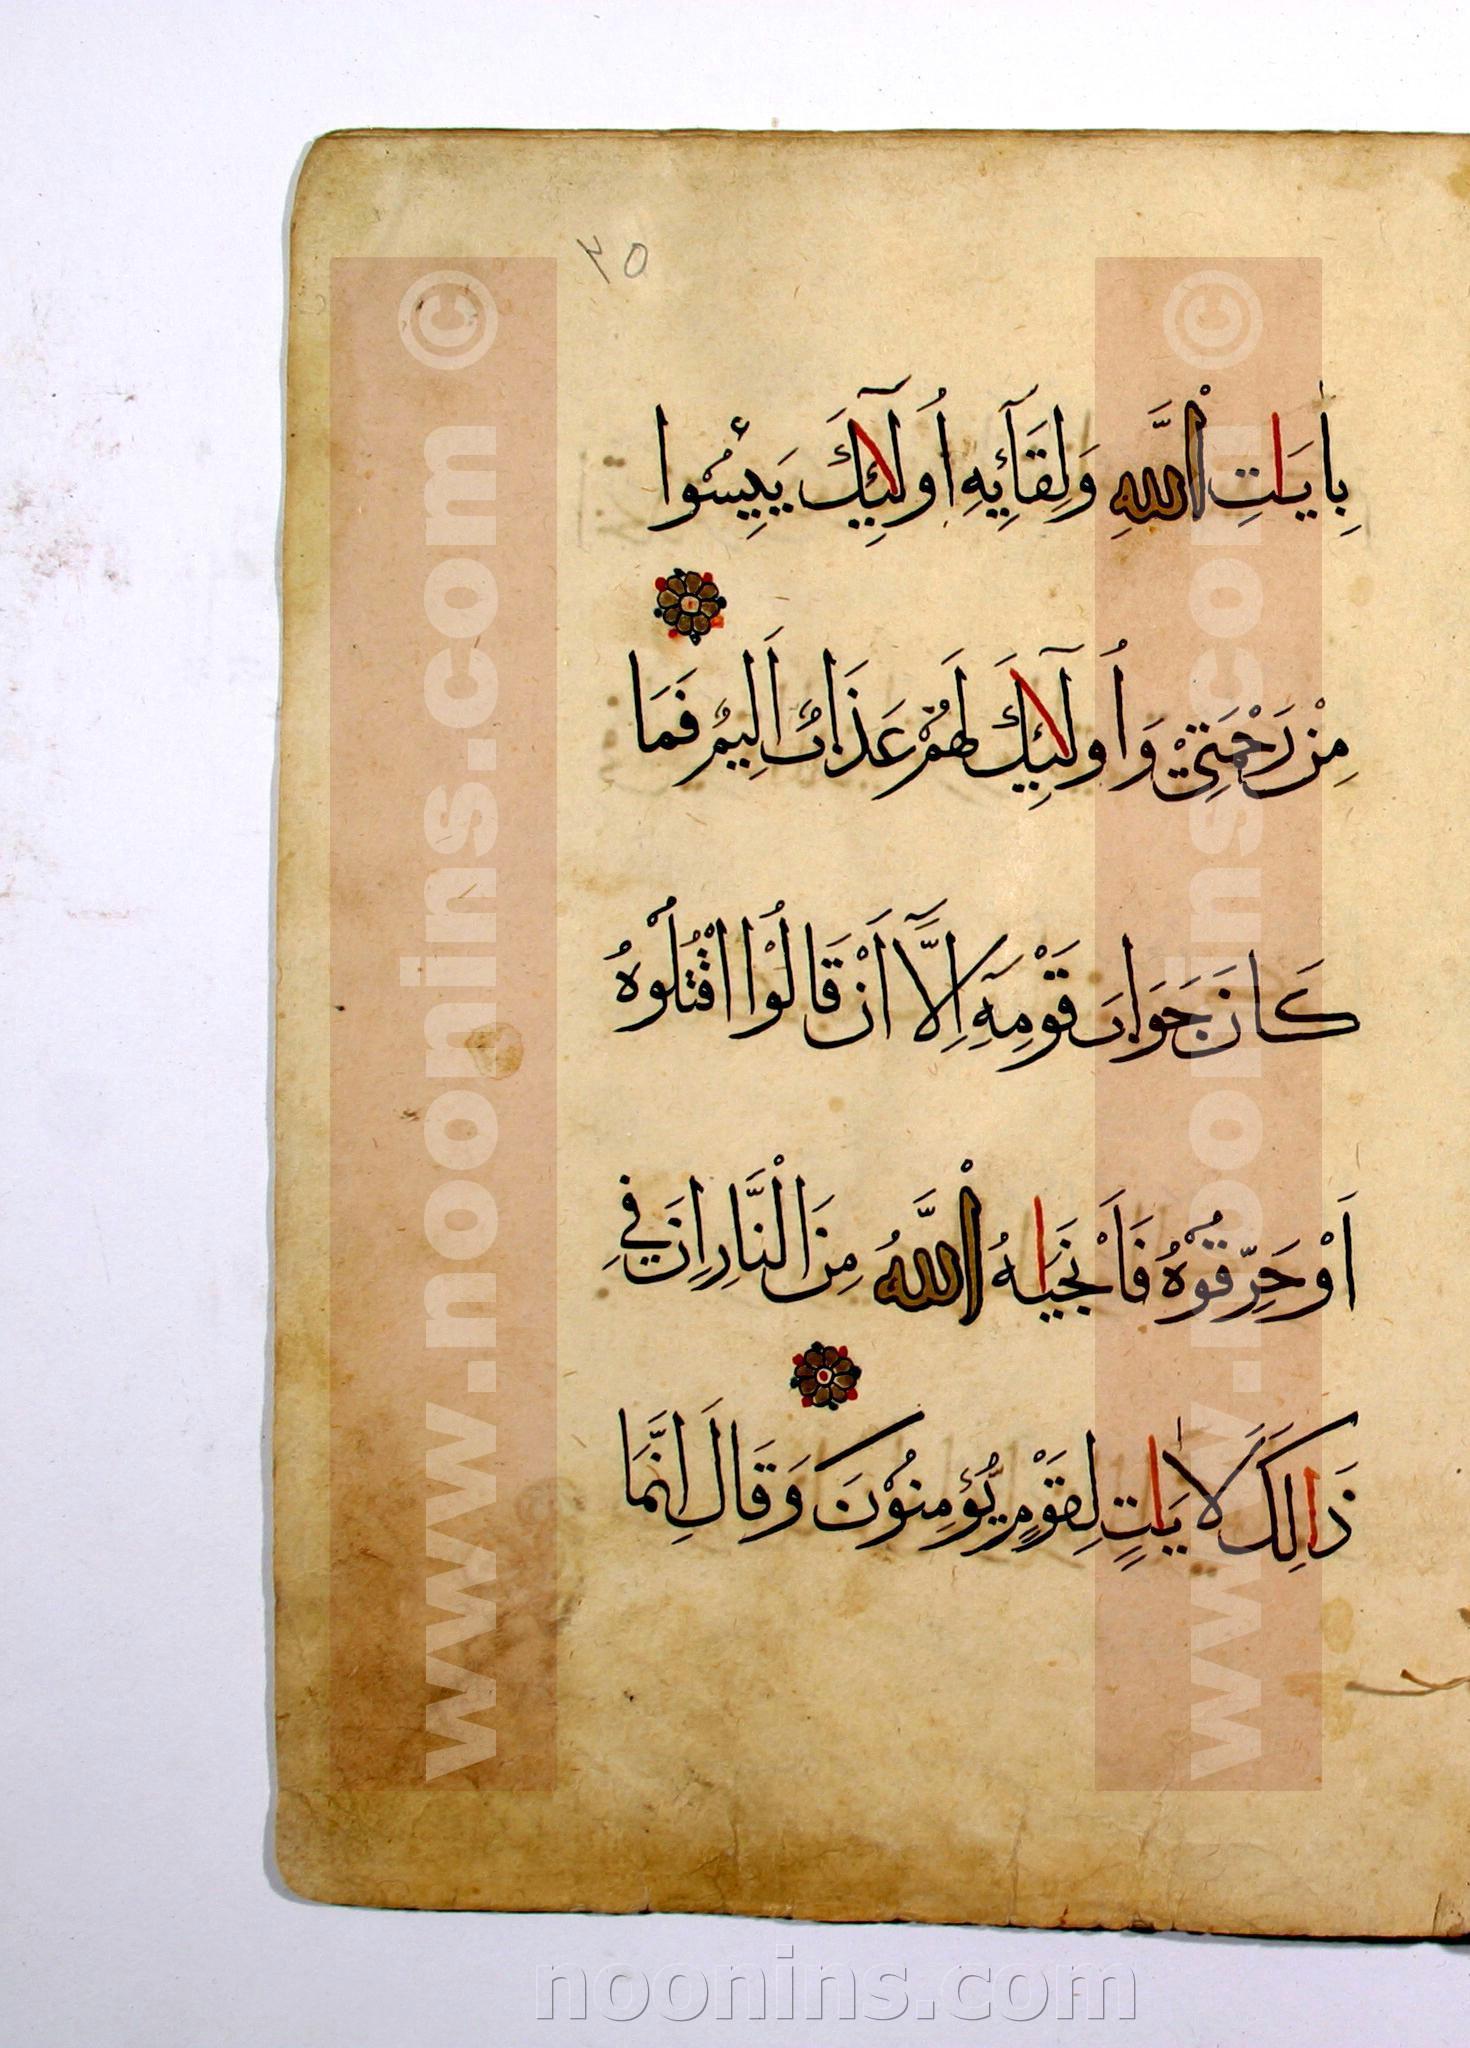 ٣٥
بِاٰيَاتِ اللَّهِ وَلِقَآئِهِ أُولَآئِكَ يَئِسُوا
مِنْ رَحْمَتِيْ وَأُولَآئِكَ لَهُمْ عَذَابٌ اَلِيمٌ فَمَا
كَانَ جَوَابَ قَوْمِهِٓ اِلَّآ اَنْ قَالُوْا اقْتُلُوْهُ
اَوْ حَرِّقُوْهُ فَاَنْجَيَاهُ اللَّهُ مِنَ الْنَّارِ اِنَ فِي
ذَالِكَ لَاٰيَاتٍ لِقَوْمٍ يُؤْمِنُوْنَ وَقَالَ اِنَّمَا
www.noonins.com ©
www.noonins.com ©
noonins.com